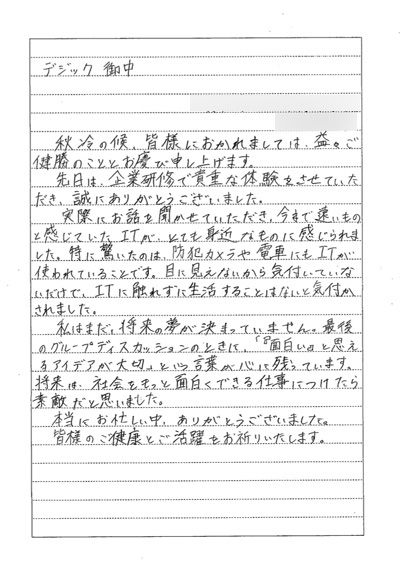 デジック 御中
秋冷の候、皆様におかれましては、益々ご
健勝のこととお慶び申し上げます。
先日は、企業研修で貴重な体験をさせていた
だき、誠にありがとうございました。
実際にお話を聞かせていただき、今まで遠いもの
と感じていたITが、とても身近なものに感じられま
した。特に驚いたのは、防犯カメラや電車にもITが
使われていることです。目に見えないから気付いていな
いだけで、ITに触れずに生活することはないと気付か
されました。
私はまだ、将来の夢が決まっていません。最後
のグループディスカッションのときに、「『面白い』と思え
るアイデアが大切」という言葉が心に残っています。
将来は、社会をもっと面白くできる仕事につけたら
素敵だと思いました。
本当にお忙しい中、ありがとうございました。
皆様のご健康とご活躍をお祈りいたします。